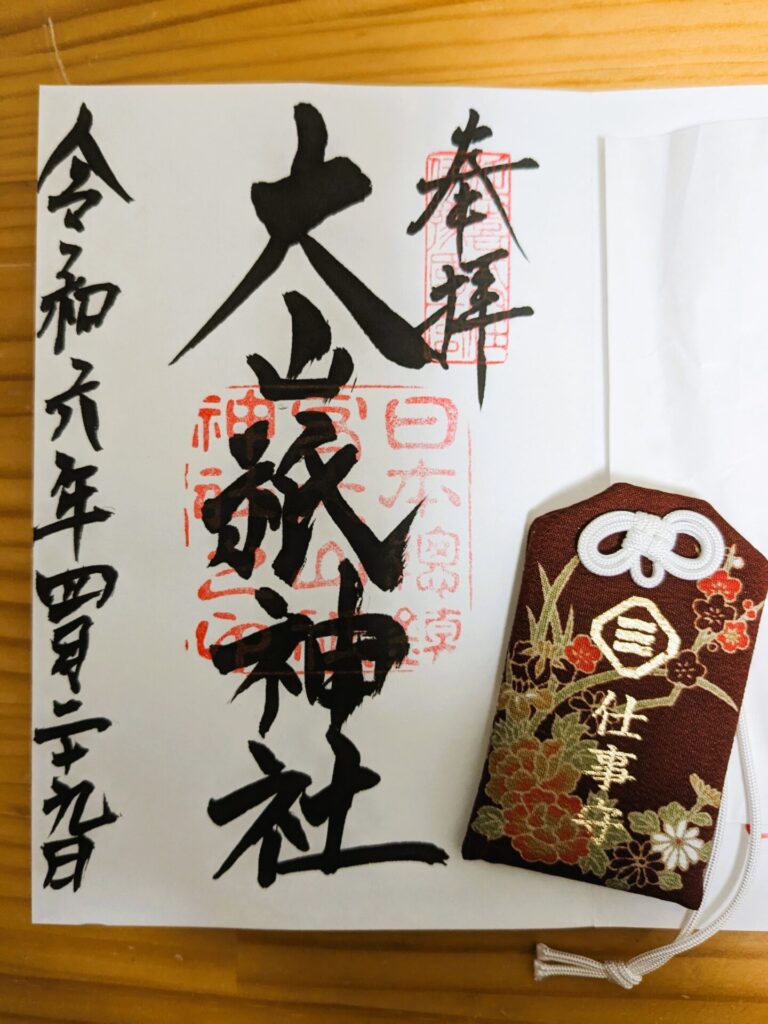 奉拝
大山祇神社
日本總鎮
神社之印
令和六年四月二十九日
三
仕事守